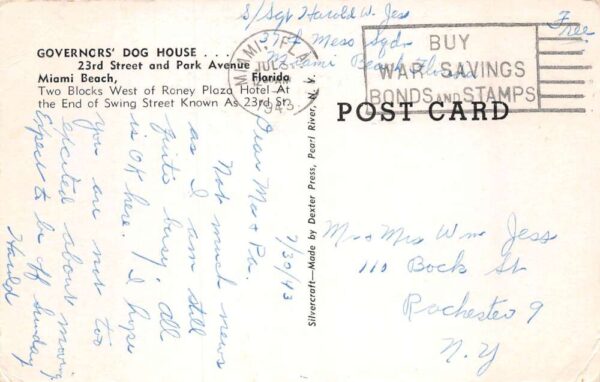 S/Sgt Harold W. Jess
Free
Mess Sqdn
Miami Beach, Florida
MIAMI, FLA.
JUL 3
AM
1943
BUY
WAR SAVINGS
BONDS AND STAMPS
GOVERNORS' DOG HOUSE . . .
23rd Street and Park Avenue
Miami Beach, Florida
Two Blocks West of Roney Plaza Hotel At
the End of Swing Street Known As 23rd St.
POST CARD
Silvercraft—Made by Dexter Press, Pearl River, N. Y.
7/30/43
Dear Ma & Pa.
Not much news
as I am still
quite busy. All
is OK here. I hope
you are not too
excited about moving
Expect to be off Sunday
Harold
Mr & Mrs Wm Jess
110 Bock St
Rochester 9
N.Y